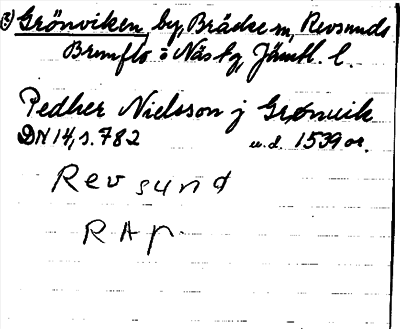 3) Grönviken, by, Bräcke sn, Revsunds
Brunflo o Näs tg, Jämtl. l.
Pedher Nielsson j Grønuik
DN 14, s. 782 u.d. 1539 or.
Revsund
RAP